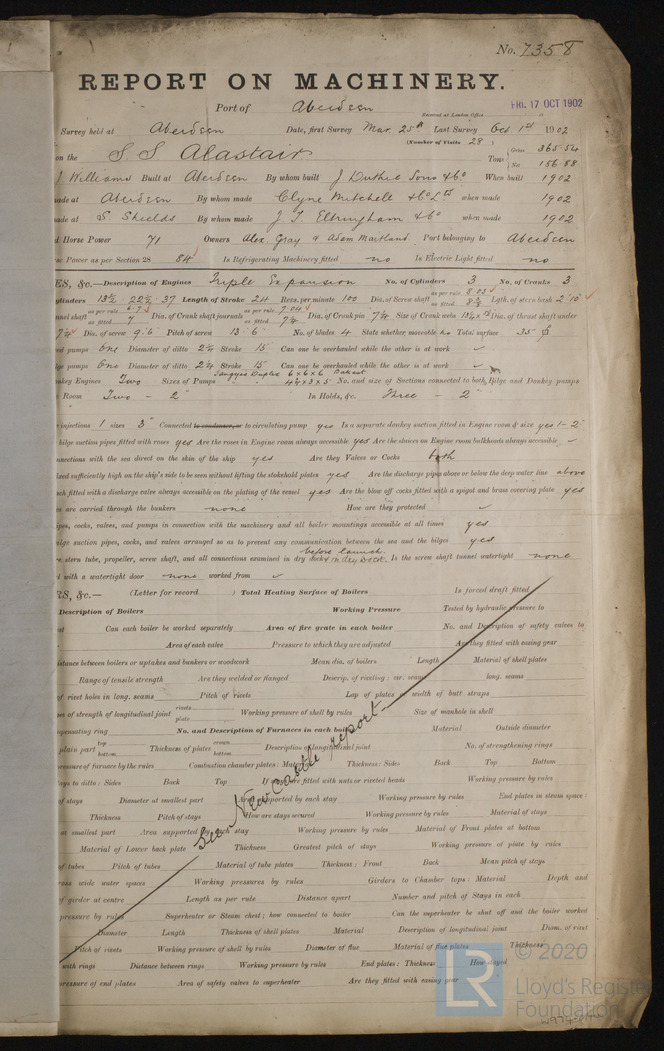 No. 7358
REPORT ON MACHINERY.
Port of Aberdeen
FRI. 17 OCT 1902
Received at London Office
Survey held at Aberdeen Date, first Survey Mar. 25th Last Survey Oct 1st 1902
(Number of Visits 28)
on the S.S Alastair Tons Gross 365.54 Net 156.88
J Williams Built at Aberdeen By whom built J Duthie Sons & Co When built 1902
made at Aberdeen By whom made Clyne Mitchell & Co Ltd when made 1902
made at S. Shields By whom made J. T. Eltringham & Co when made 1902
d Horse Power 71 Owners Alex. Gray & Adam Maitland Port belonging to Aberdeen
se Power as per Section 28 84 Is Refrigerating Machinery fitted no Is Electric Light fitted no
ES, &c.—Description of Engines Triple Expansion No. of Cylinders 3 No. of Cranks 3
ylinders 13½ 22½ 37 Length of Stroke 24 Revs. per minute 100 Dia. of Screw shaft as per rule 8.03 as fitted Lgth. of stern bush 2' 10"
nnel shaft as per rule 6.73 as fitted 7 Dia. of Crank shaft journals as per rule 7.04 as fitted 7¼ Dia. of Crank pin 7¼ Size of Crank webs Dia. of thrust shaft under
7¼ Dia. of screw 9.6 Pitch of screw 13.6 No. of blades 4 State whether moveable no Total surface 35
ed pumps One Diameter of ditto 2¼ Stroke 15 Can one be overhauled while the other is at work
lge pumps One Diameter of ditto 2¼ Stroke 15 Can one be overhauled while the other is at work
nkey Engines Two Sizes of Pumps Duplex 6 x 6 x 6 Ballast 4½ x 3 x 5 No. and size of Suctions connected to both Bilge and Donkey pumps
e Room Two - 2" In Holds, &c. Three - 2"
injections 1 sizes 3" Connected to condenser, or to circulating pump yes Is a separate donkey suction fitted in Engine room & size yes 1 - 2"
bilge suction pipes fitted with roses yes Are the roses in Engine room always accessible yes Are the sluices on Engine room bulkheads always accessible
nnections with the sea direct on the skin of the ship yes Are they Valves or Cocks both
ixed sufficiently high on the ship's side to be seen without lifting the stokehold plates yes Are the discharge pipes above or below the deep water line above
ach fitted with a discharge valve always accessible on the plating of the vessel yes Are the blow off cocks fitted with a spigot and brass covering plate yes
es are carried through the bunkers none How are they protected
ipes, cocks, valves, and pumps in connection with the machinery and all boiler mountings accessible at all times yes
bilge suction pipes, cocks, and valves arranged so as to prevent any communication between the sea and the bilges yes
before launch
re stern tube, propeller, screw shaft, and all connections examined in dry dock & in dry Dock Is the screw shaft tunnel watertight none
d with a watertight door none worked from
RS, &c.— (Letter for record ) Total Heating Surface of Boilers Is forced draft fitted
Description of Boilers Working Pressure Tested by hydraulic pressure to
est Can each boiler be worked separately Area of fire grate in each boiler No. and Description of safety valves to
Area of each valve Pressure to which they are adjusted Are they fitted with easing gear
distance between boilers or uptakes and bunkers or woodwork Mean dia. of boilers Length Material of shell plates
Range of tensile strength Are they welded or flanged Descrip. of riveting: cir. seams long. seams
of rivet holes in long. seams Pitch of rivets Lap of plates or width of butt straps
es of strength of longitudinal joint rivets plate Working pressure of shell by rules Size of manhole in shell
mpensating ring No. and Description of Furnaces in each boiler Material Outside diameter
plain part top bottom Thickness of plates crown bottom Description of longitudinal joint No. of strengthening rings
pressure of furnace by the rules Combustion chamber plates: Material Thickness: Sides Back Top Bottom
tays to ditto: Sides Back Top If stays are fitted with nuts or riveted heads Working pressure by rules
of stays Diameter at smallest part Area supported by each stay Working pressure by rules End plates in steam space:
Thickness Pitch of stays How are stays secured Working pressure by rules Material of stays
at smallest part Area supported by each stay Working pressure by rules Material of Front plates at bottom
Material of Lower back plate Thickness Greatest pitch of stays Working pressure of plate by rules
of tubes Pitch of tubes Material of tube plates Thickness: Front Back Mean pitch of stays
ross wide water spaces Working pressures by rules Girders to Chamber tops: Material Depth and
of girder at centre Length as per rule Distance apart Number and pitch of Stays in each
pressure by rules Superheater or Steam chest; how connected to boiler Can the superheater be shut off and the boiler worked
Diameter Length Thickness of shell plates Material Description of longitudinal joint Diam. of rivet
Pitch of rivets Working pressure of shell by rules Diameter of flue Material of flue plates Thickness
with rings Distance between rings Working pressure by rules End plates: Thickness How stayed
pressure of end plates Area of safety valves to superheater Are they fitted with easing gear
See Newcastle report
© 2020
Lloyd's Register
Foundation
LR